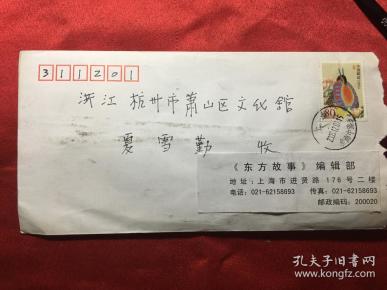 311201
浙江 杭州市萧山区文化馆
夏雪勤 收
《东方故事》编辑部
地址：上海市进贤路176号二楼
电话：021-62158693 传真：021-62158693
邮政编码：200020
80
孔夫子旧书网
www.kongfz.com